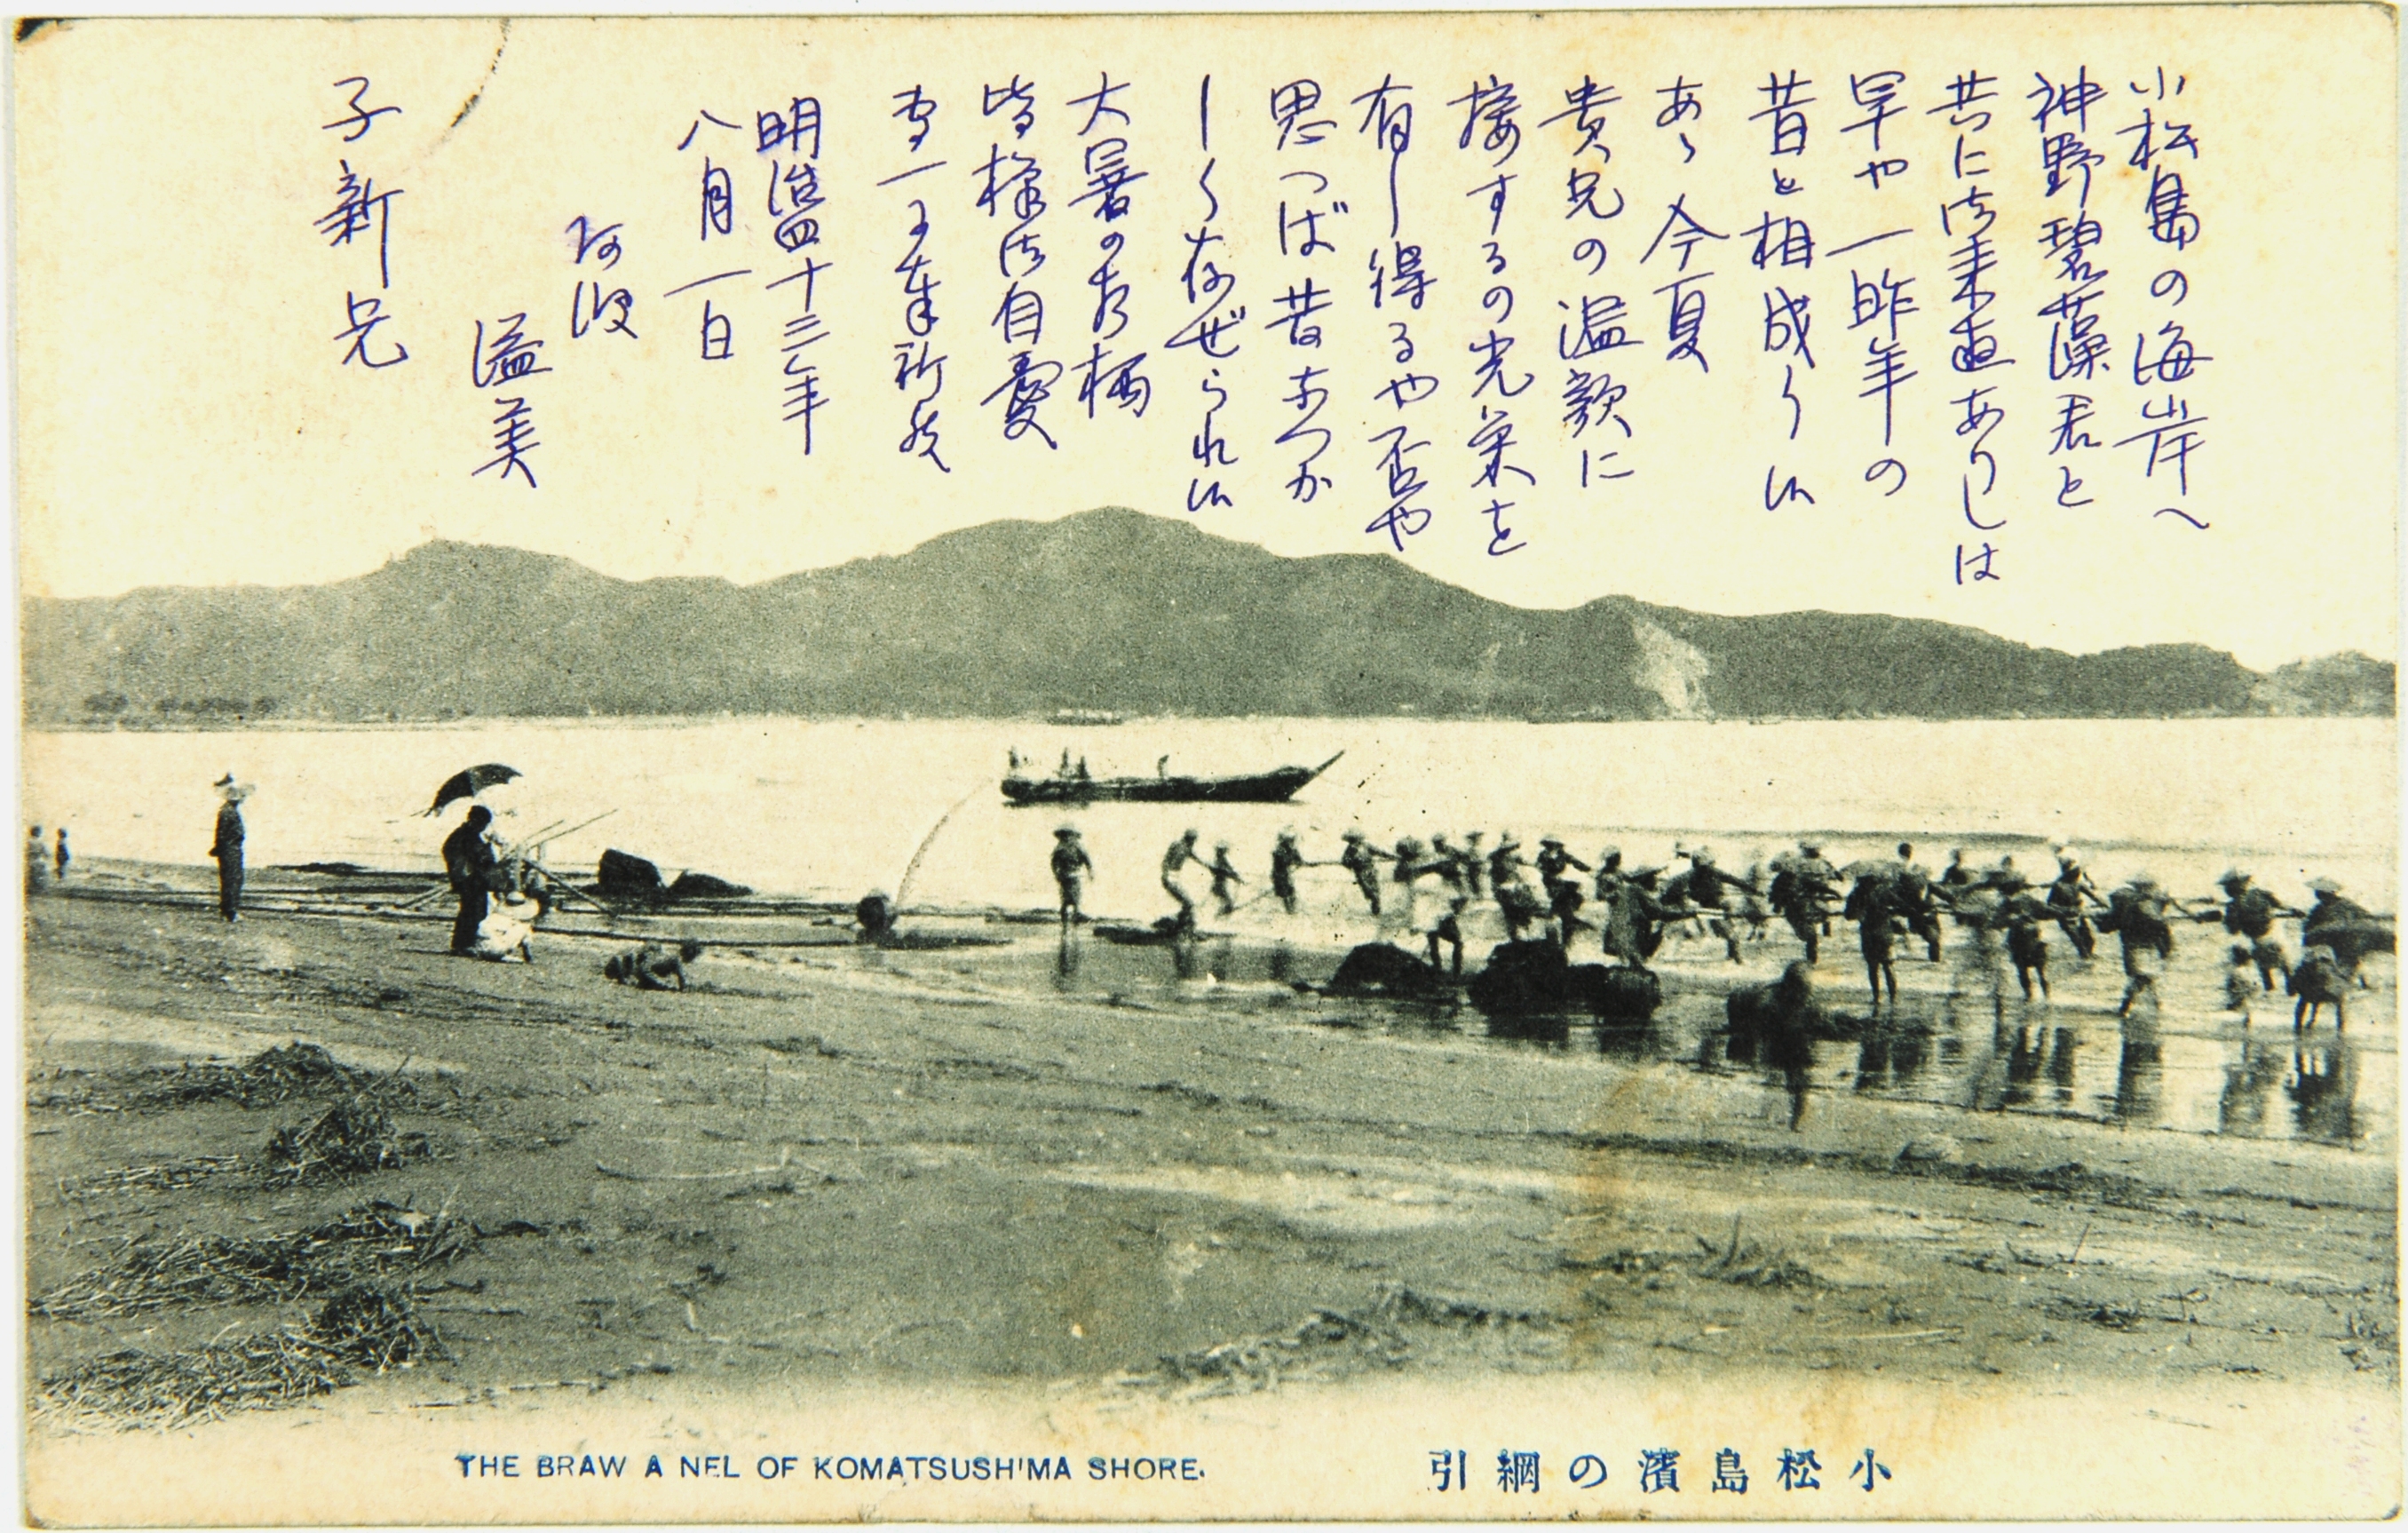 小松島の海岸へ
神野碧藻君と
共に御来遊ありしは
早や一昨年の
昔と相成り候
あゝ今夏
貴兄の温歌に
接するの光栄を
有し得るや否や
思へば昔なつか
しく存ぜられ候
大暑の折柄
皆様御自愛
専一に奉祈候
明治四十三年
八月一日
阿波
溢美
子新兄
THE BRAW A NEL OF KOMATSUSHIMA SHORE.
引網の濱島松小